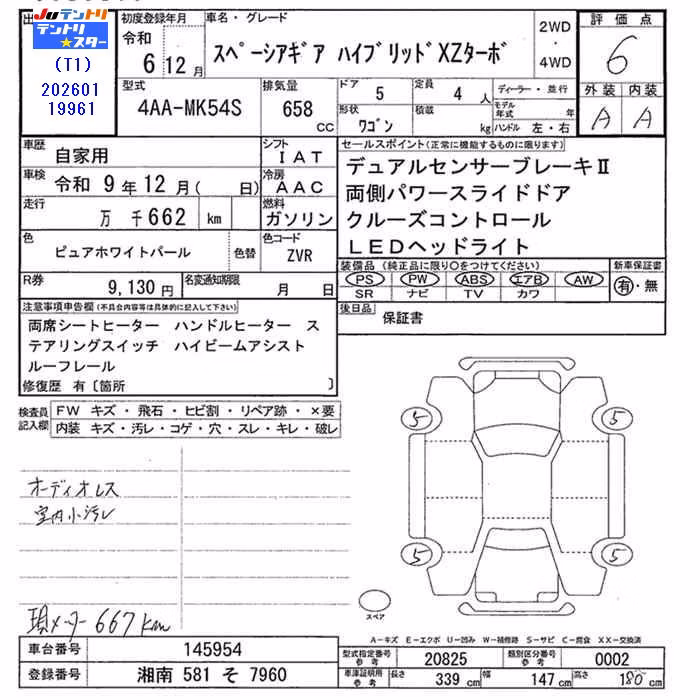 JUテントリ
テントリ
スター
(T1)
202601
19961
初度登録年月
令和
6 12 月
車名・グレード
スペーシアギア ハイブリッドXZターボ
2WD
・
4WD
評価点
6
外装 内装
A A
型式
4AA-MK54S
排気量
658
CC
ドア
5
定員
4 人
形状
ワゴン
積載
kg
ディーラー・並行
モデル年式 年
ハンドル 左・右
車歴
自家用
シフト
IAT
車検
令和 9 年 12 月( 日)
冷房
AAC
走行
万 千662 km
燃料
ガソリン
色
ピュアホワイトパール
色替
色コード
ZVR
R券
9,130 円
名変通知期限
月 日
セールスポイント(正常に機能するものに限ります)
デュアルセンサーブレーキⅡ
両側パワースライドドア
クルーズコントロール
LEDヘッドライト
装備品(純正品に限り○をつけてください)
PS PW ABS エアB AW
SR ナビ TV カワ
新車保証書
有・無
後日品
保証書
注意事項申告欄(不具合内容等は具体的に記入して下さい)
両席シートヒーター ハンドルヒーター ス
テアリングスイッチ ハイビームアシスト
ルーフレール
修復歴 有〔箇所 〕
検査員記入欄
FW キズ・飛石・ヒビ割・リペア跡・×要
内装 キズ・汚レ・コゲ・穴・スレ・キレ・破レ
オーディオレス
室内小汚レ
現メーター667km
5 5
5 5
スペア
A-キズ E-エクボ U-凹み W-補修跡 S-サビ C-腐食 XX-交換済
車台番号
145954
登録番号
湘南 581 そ 7960
型式指定番号
参考
20825
類別区分番号
参考
0002
車庫証明用
参考
長さ 339 cm 幅 147 cm 高さ 180 cm